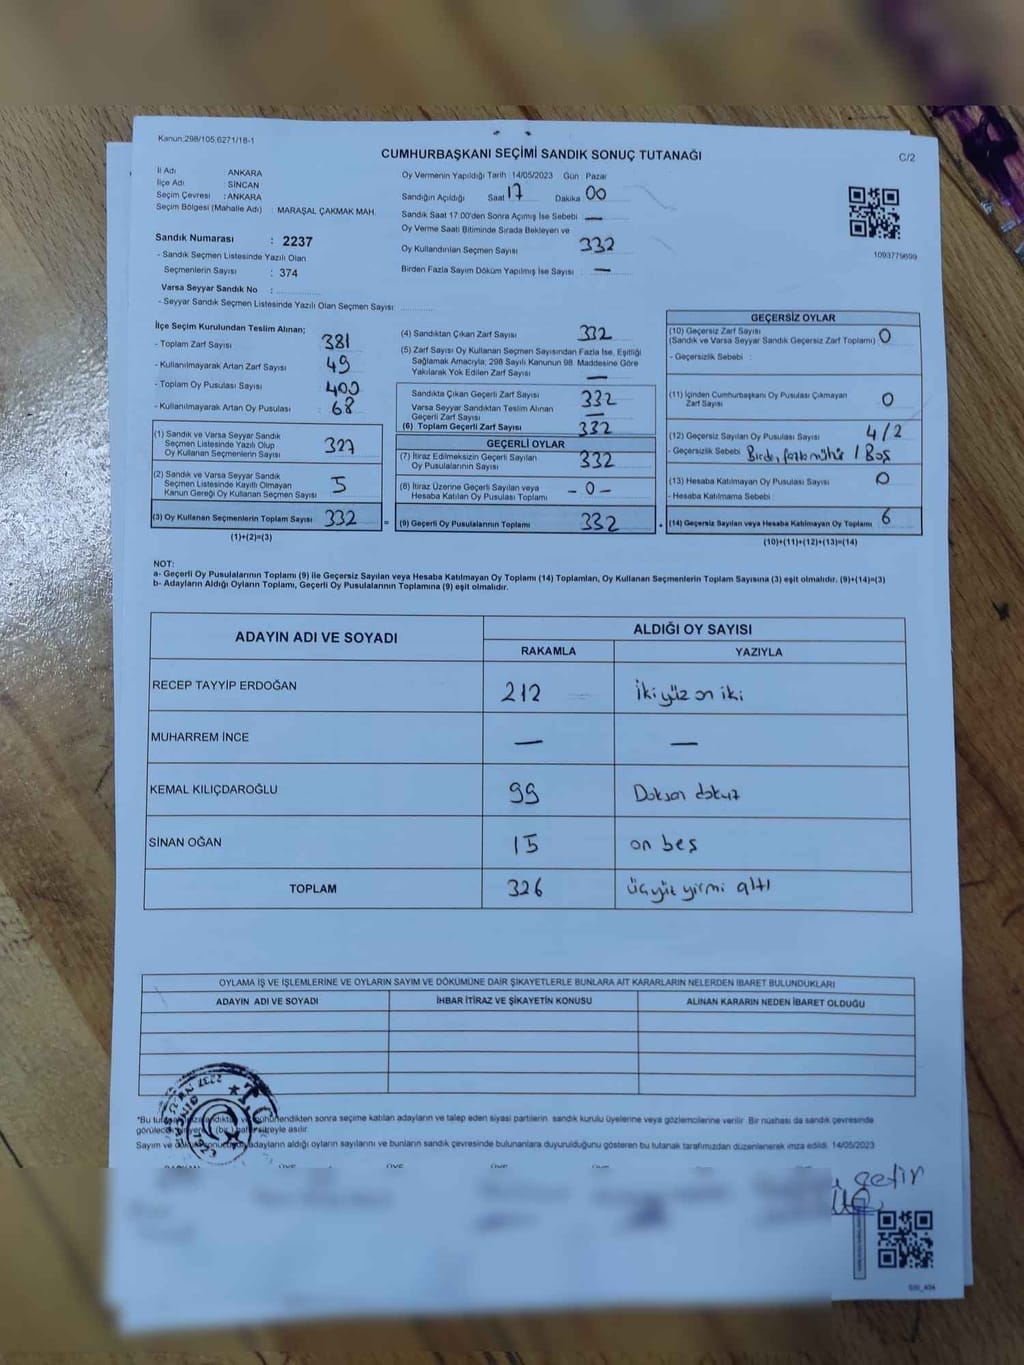 Kanun:298/105,6271/18-1
CUMHURBAŞKANI SEÇİMİ SANDIK SONUÇ TUTANAĞI
C/2
İl Adı : ANKARA
İlçe Adı : SİNCAN
Seçim Çevresi : ANKARA
Seçim Bölgesi (Mahalle Adı) : MARAŞAL ÇAKMAK MAH.
Sandık Numarası : 2237
- Sandık Seçmen Listesinde Yazılı Olan
Seçmenlerin Sayısı : 374
Varsa Seyyar Sandık No :
- Seyyar Sandık Seçmen Listesinde Yazılı Olan Seçmen Sayısı
Oy Vermenin Yapıldığı Tarih :14/05/2023 Gün : Pazar
Sandığın Açıldığı Saat 17 Dakika 00
Sandık Saat 17.00'den Sonra Açımış İse Sebebi —
Oy Verme Saati Bitiminde Sırada Bekleyen ve
Oy Kullandırılan Seçmen Sayısı 332
Birden Fazla Sayım Döküm Yapılmış İse Sayısı : —
1093779699
İlçe Seçim Kurulundan Teslim Alınan;
- Toplam Zarf Sayısı 381
- Kullanılmayarak Artan Zarf Sayısı 49
- Toplam Oy Pusulası Sayısı 400
- Kullanılmayarak Artan Oy Pusulası 68
(1) Sandık ve Varsa Seyyar Sandık
Seçmen Listesinde Yazılı Olup
Oy Kullanan Seçmenlerin Sayısı 327
(2) Sandık ve Varsa Seyyar Sandık
Seçmen Listesinde Kayıtlı Olmayan
Kanun Gereği Oy Kullanan Seçmen Sayısı 5
(3) Oy Kullanan Seçmenlerin Toplam Sayısı 332
(1)+(2)=(3)
(4) Sandıktan Çıkan Zarf Sayısı 332
(5) Zarf Sayısı Oy Kullanan Seçmen Sayısından Fazla İse, Eşitliği
Sağlamak Amacıyla; 298 Sayılı Kanunun 98. Maddesine Göre
Yakılarak Yok Edilen Zarf Sayısı —
Sandıkta Çıkan Geçerli Zarf Sayısı 332
Varsa Seyyar Sandıktan Teslim Alınan
Geçerli Zarf Sayısı —
(6) Toplam Geçerli Zarf Sayısı 332
GEÇERLİ OYLAR
(7) İtiraz Edilmeksizin Geçerli Sayılan
Oy Pusulalarının Sayısı 332
(8) İtiraz Üzerine Geçerli Sayılan veya
Hesaba Katılan Oy Pusulası Toplamı - 0 -
= (9) Geçerli Oy Pusulalarının Toplamı 332 +
GEÇERSİZ OYLAR
(10) Geçersiz Zarf Sayısı
(Sandık ve Varsa Seyyar Sandık Geçersiz Zarf Toplamı) 0
- Geçersizlik Sebebi :
(11) İçinden Cumhurbaşkanı Oy Pusulası Çıkmayan
Zarf Sayısı 0
(12) Geçersiz Sayılan Oy Pusulası Sayısı 4/2
- Geçersizlik Sebebi Birden fazla mühür / Boş
(13) Hesaba Katılmayan Oy Pusulası Sayısı 0
- Hesaba Katılmama Sebebi
(14) Geçersiz Sayılan veya Hesaba Katılmayan Oy Toplamı 6
(10)+(11)+(12)+(13)=(14)
NOT:
a- Geçerli Oy Pusulalarının Toplamı (9) ile Geçersiz Sayılan veya Hesaba Katılmayan Oy Toplamı (14) Toplamları, Oy Kullanan Seçmenlerin Toplam Sayısına (3) eşit olmalıdır. (9)+(14)=(3)
b- Adayların Aldığı Oyların Toplamı, Geçerli Oy Pusulalarının Toplamına (9) eşit olmalıdır.
ADAYIN ADI VE SOYADI
ALDIĞI OY SAYISI
RAKAMLA YAZIYLA
RECEP TAYYİP ERDOĞAN 212 İki yüz on iki
MUHARREM İNCE — —
KEMAL KILIÇDAROĞLU 99 Doksan dokuz
SİNAN OĞAN 15 on beş
TOPLAM 326 üçyüz yirmi altı
OYLAMA İŞ VE İŞLEMLERİNE VE OYLARIN SAYIM VE DÖKÜMÜNE DAİR ŞİKAYETLERLE BUNLARA AİT KARARLARIN NELERDEN İBARET BULUNDUKLARI
ADAYIN ADI VE SOYADI İHBAR İTİRAZ VE ŞİKAYETİN KONUSU ALINAN KARARIN NEDEN İBARET OLDUĞU
*Bu sonra seçime katılan adayların ve talep eden siyasi partilerin, sandık kurulu üyelerine veya gözlemcilerine verilir. Bir nüshası da sandık çevresinde
görülecek süreyle asılır.
Sayım ve adayların aldığı oyların sayılarını ve bunların sandık çevresinde bulunanlara duyurulduğunu gösteren bu tutanak tarafımızdan düzenlenerek imza edildi. 14/05/2023
ÜYE ÜYE ÜYE ÜYE
çetir